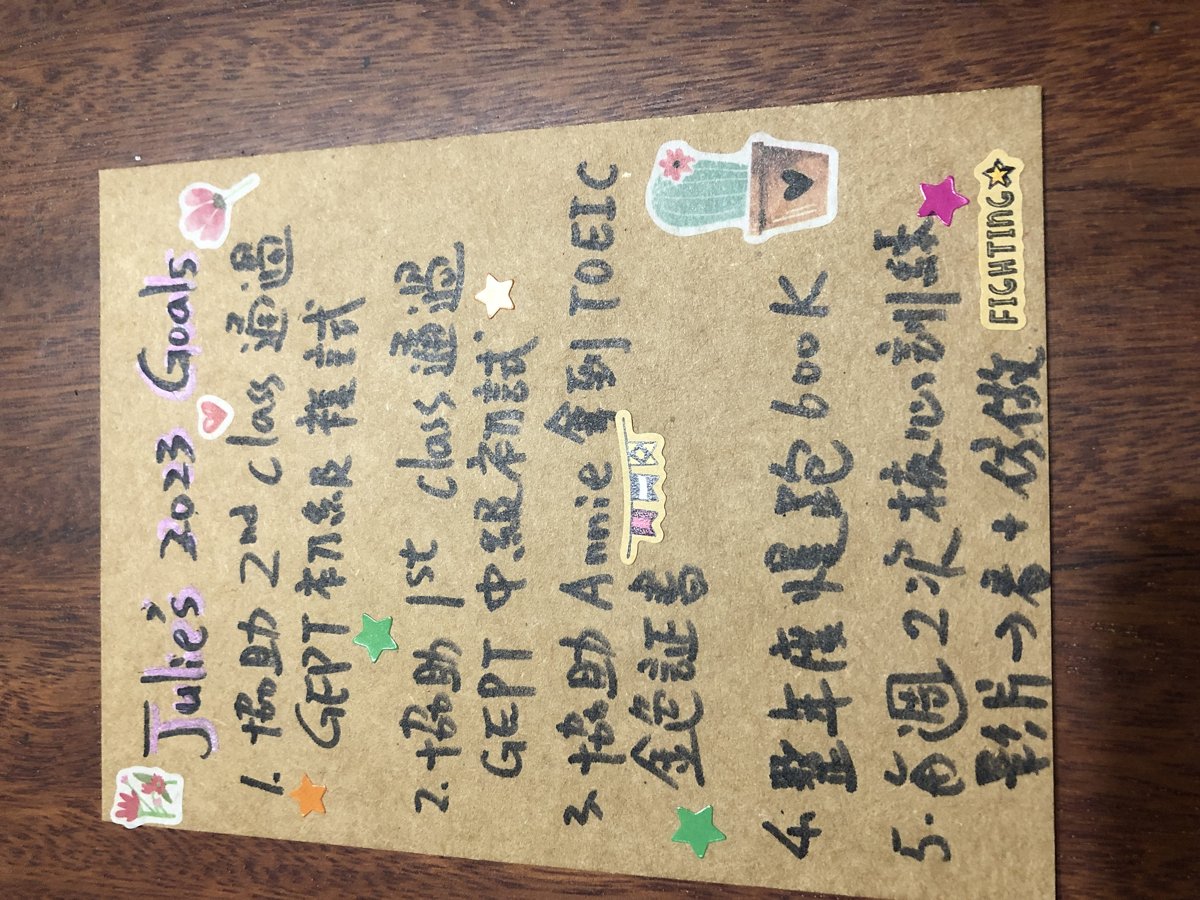 Julie's 2023 Goals
1. 協助 2nd class 通過
GEPT 初級複試
2. 協助 1st class 通過
GEPT 中級初試
3. 協助 Annie 拿到 TOEIC
金色証書
4. 整年度慢跑 600 K
5. 每週 2 次核心訓練
影片→看+仿做
FIGHTING